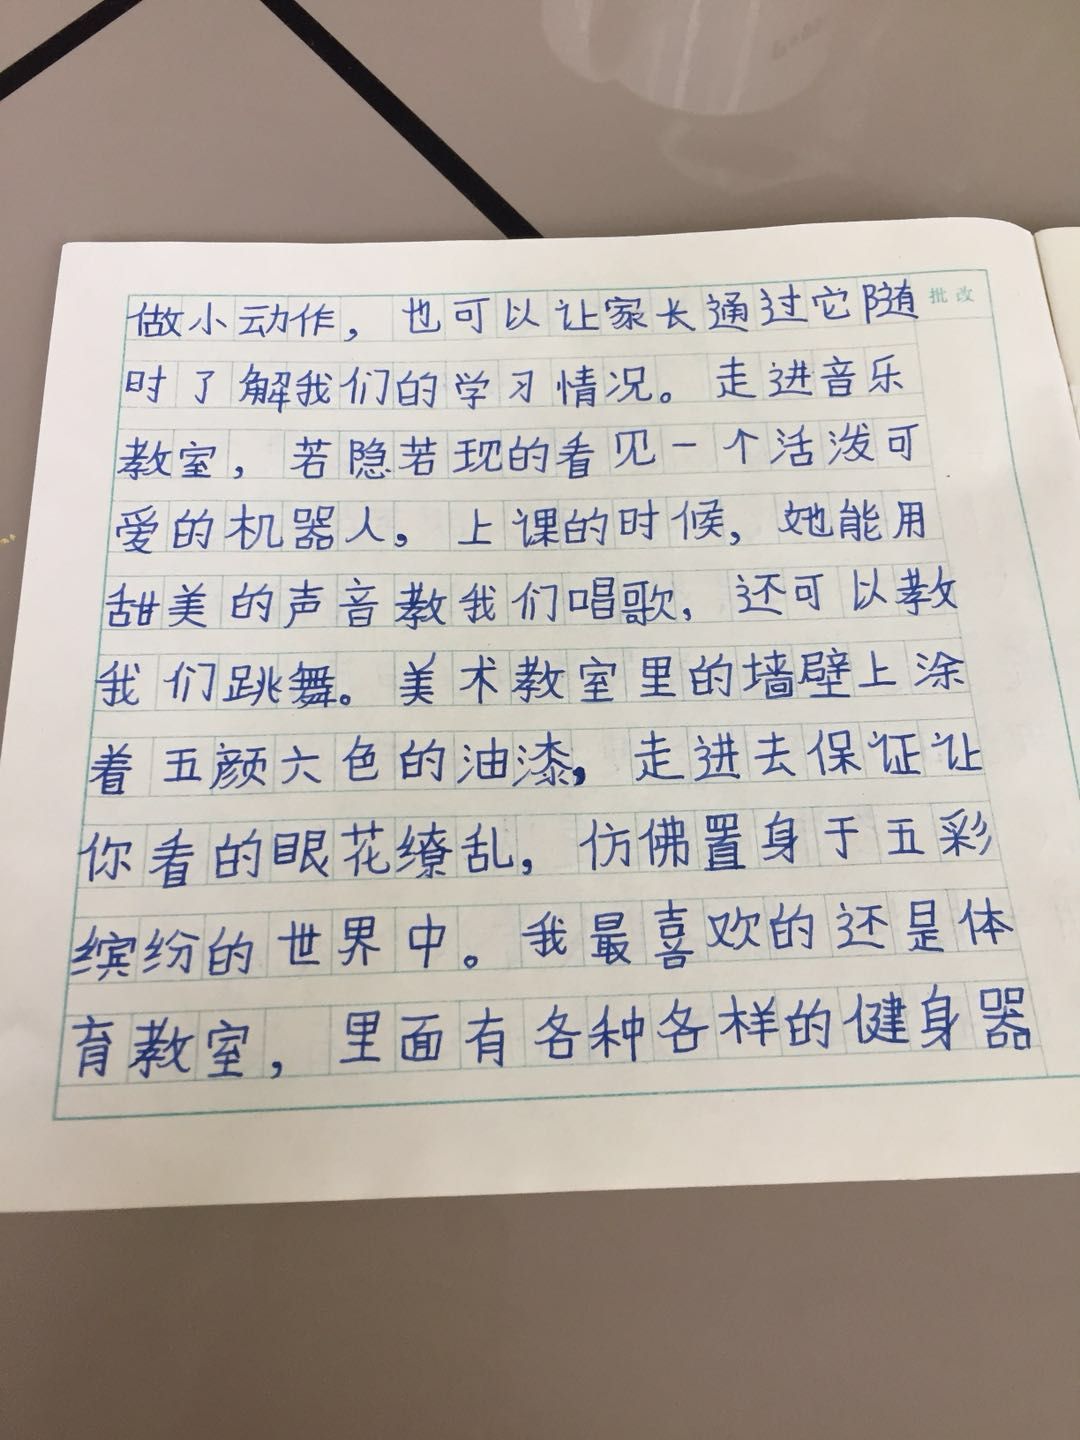 做小动作，也可以让家长通过它随
批改
时了解我们的学习情况。走进音乐
教室，若隐若现的看见一个活泼可
爱的机器人。上课的时候，她能用
甜美的声音教我们唱歌，还可以教
我们跳舞。美术教室里的墙壁上涂
着五颜六色的油漆，走进去保证让
你看的眼花缭乱，仿佛置身于五彩
缤纷的世界中。我最喜欢的还是体
育教室，里面有各种各样的健身器